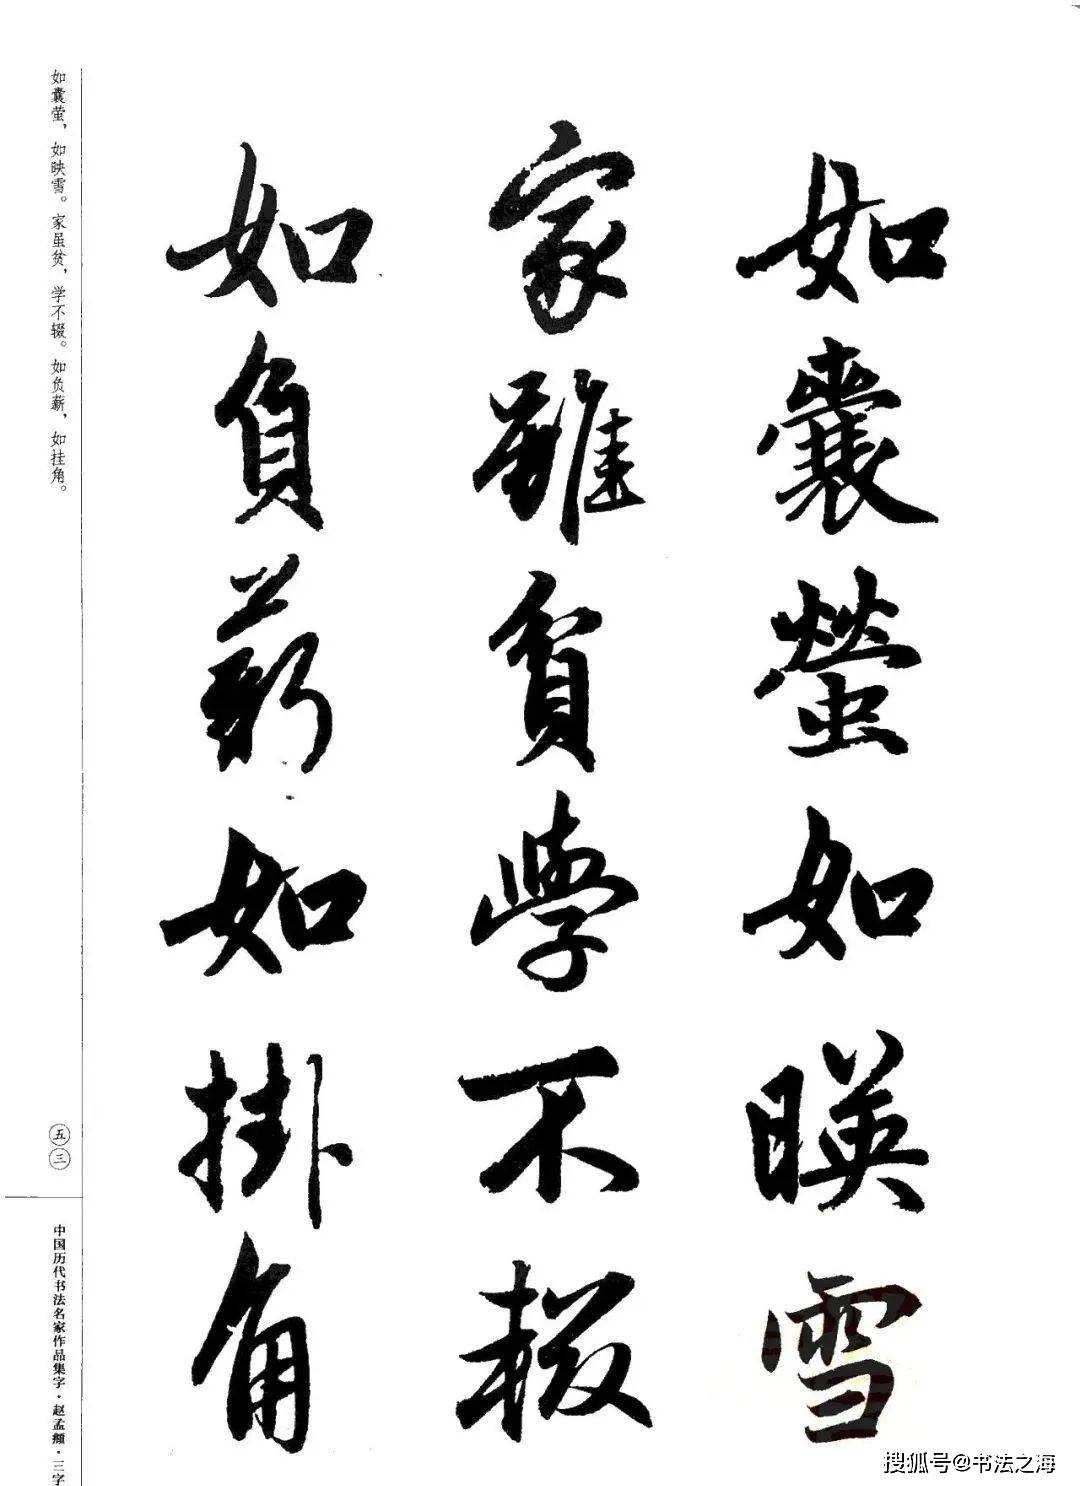 如囊螢如暎雪
家雖貧學不輟
如負薪如掛角
如囊萤，如映雪。家虽贫，学不辍。如负薪，如挂角。
五三
中国历代书法名家作品集字·赵孟頫·三字
搜狐号@书法之海